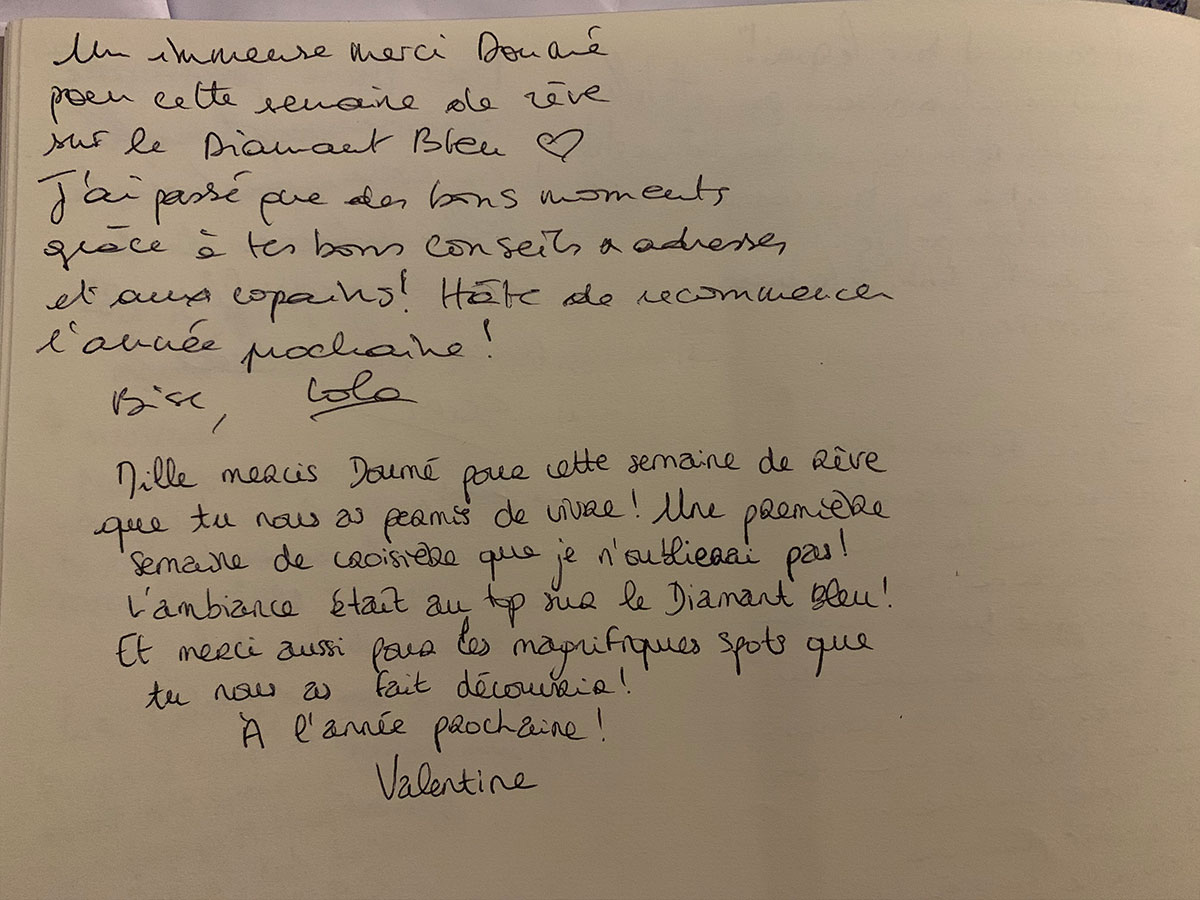 Un immense merci Doumé
pour cette semaine de rêve
sur le Diamant Bleu ♡
J'ai passé que des bons moments
grâce à tes bons conseils & adresses
et aux copains! Hâte de recommencer
l'année prochaine!
Bise, Lola
Mille mercis Doumé pour cette semaine de rêve
que tu nous as permis de vivre! Une première
semaine de croisière que je n'oublierai pas!
L'ambiance était au top sur le Diamant Bleu!
Et merci aussi pour les magnifiques spots que
tu nous as fait découvrir!
À l'année prochaine!
Valentine